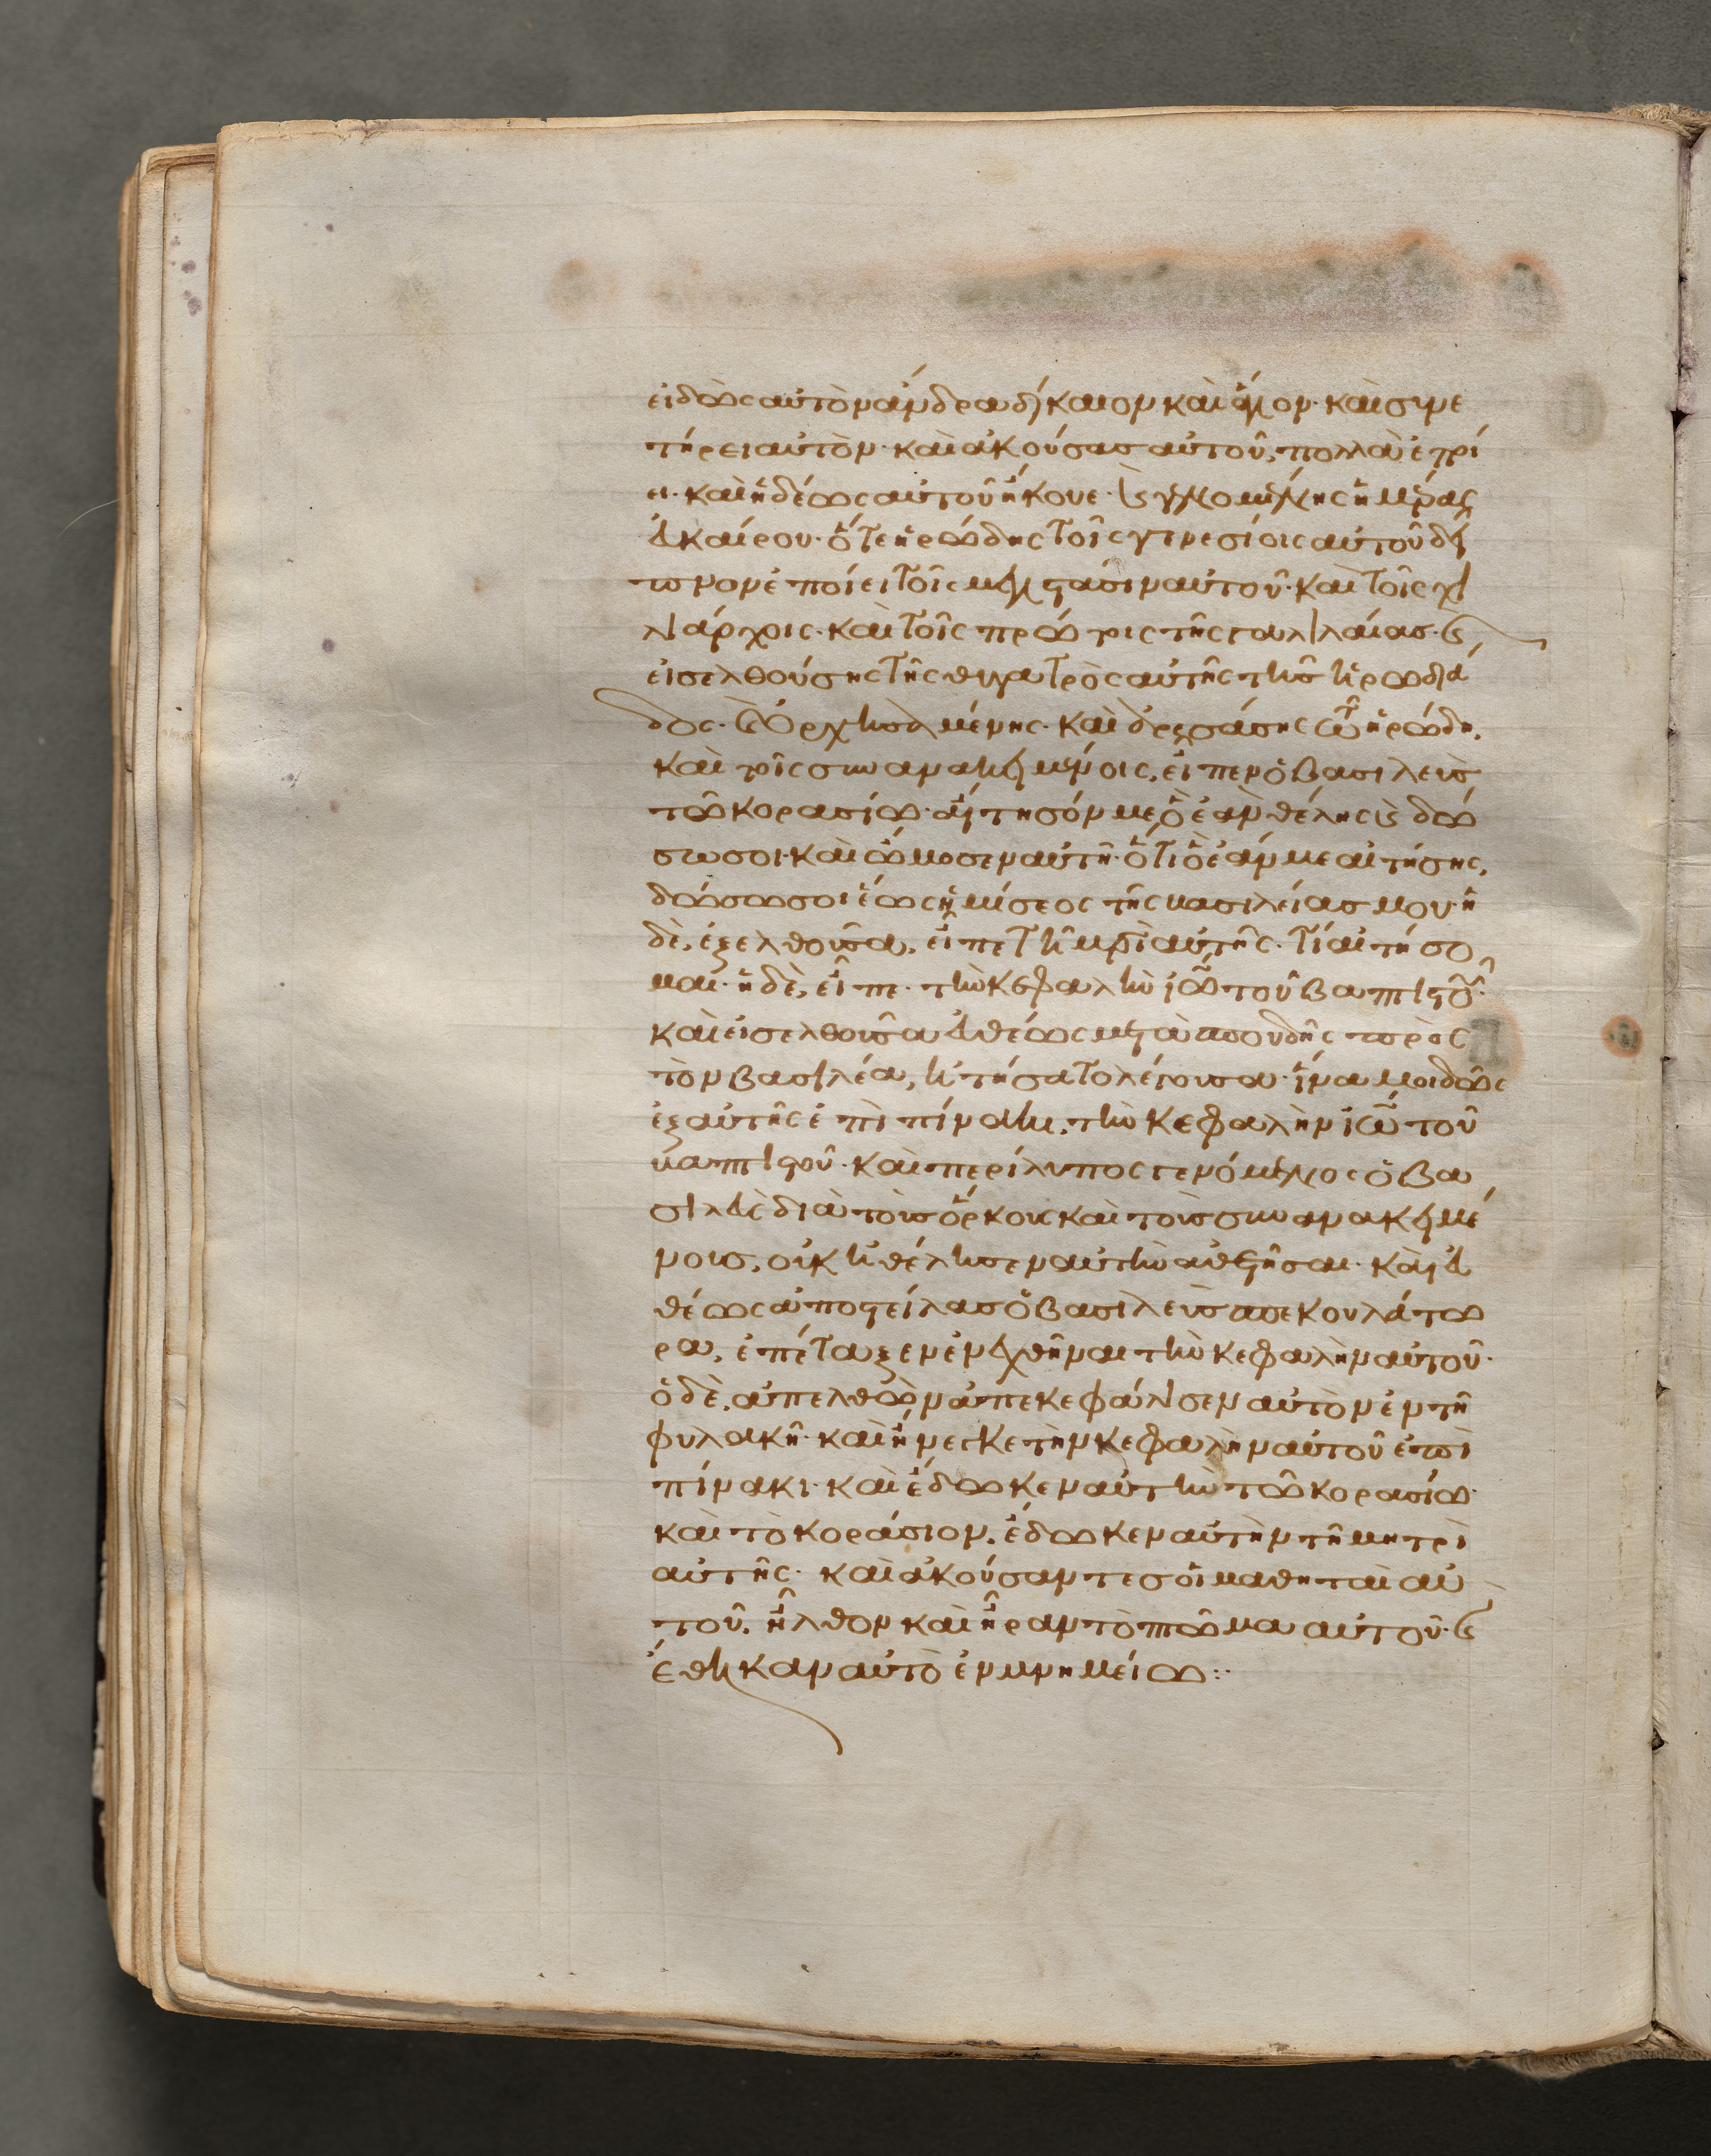 εἰδὼς αὐτὸν ἄνδρα δίκαιον καὶ ἅγιον· καὶ συνε
τήρει αὐτόν· καὶ ἀκούσας αὐτοῦ, πολλὰ ἐποί
ει· καὶ ἡδέως αὐτοῦ ἤκουε· ϗ γενομένης ἡμέρας
εὐκαίρου· ὅτε ἡρώδης τοῖς γενεσίοις αὐτοῦ δεῖ
πνον ἐποίει τοῖς μεγιστᾶσιν αὐτοῦ· καὶ τοῖς χι
λιάρχοις· καὶ τοῖς πρώτοις τῆς γαλιλαίας· ϗ
εἰσελθούσης τῆς θυγατρὸς αὐτῆς τῆς ἡρωδιά
δος· ϗ ὀρχησαμένης· καὶ ἀρεσάσης τῷ ἡρώδη,
καὶ τοῖς συνανακειμένοις, εἶπεν ὁ βασιλεὺς
τῶ κορασίω· αἴτησόν με ὃ ἐὰν θέλης ϗ δώ
σω σοι· καὶ ὤμοσεν αὐτῆ· ὅτι ὃ ἐάν με αἰτήσης,
δώσω σοι ἕως ἡμίσεος τῆς βασιλείας μου· ἡ
δὲ, ἐξελθοῦσα, εἶπε τῆ μρὶ αὐτῆς· τί αἰτήσο
μαι· ἡ δὲ, εἶπε· τὴν κεφαλὴν ἰω τοῦ βαπτιστοῦ·
καὶ εἰσελθοῦσα εὐθέως μετὰ σπουδῆς πρὸς
τὸν βασιλέα, ἠτήσατο λέγουσα· ἵνα μοι δῶς
ἐξαυτῆς ἐπὶ πίνακι, τὴν κεφαλὴν ἰω τοῦ
βαπτιστοῦ· καὶ περίλυπος γενόμενος ὁ βα
σιλεὺς διὰ τοὺς ὅρκους καὶ τοὺς συνανακειμέ
νους, οὐκ ἠθέλησεν αὐτὴν ἀθετῆσαι· καὶ εὐ
θέως ἀποστείλας ὁ βασιλεὺς σπεκουλάτω
ρα, ἐπέταξεν ἐνεχθῆναι τὴν κεφαλὴν αὐτοῦ·
ὁ δὲ, ἀπελθὼν ἀπεκεφάλισεν αὐτὸν ἐν τῆ
φυλακῆ· καὶ ἤνεγκε τὴν κεφαλὴν αὐτοῦ ἐπὶ
πίνακι· καὶ ἔδωκεν αὐτὴν τῶ κορασίω·
καὶ τὸ κοράσιον, ἔδωκεν αὐτὴν τῆ μητρὶ
αὐτῆς· καὶ ἀκούσαντες οἱ μαθηταὶ αὐ
τοῦ, ἦλθον καὶ ἦραν τὸ πτῶμα αὐτοῦ· ϗ
ἔθηκαν αὐτὸ ἐν μνημείω:·